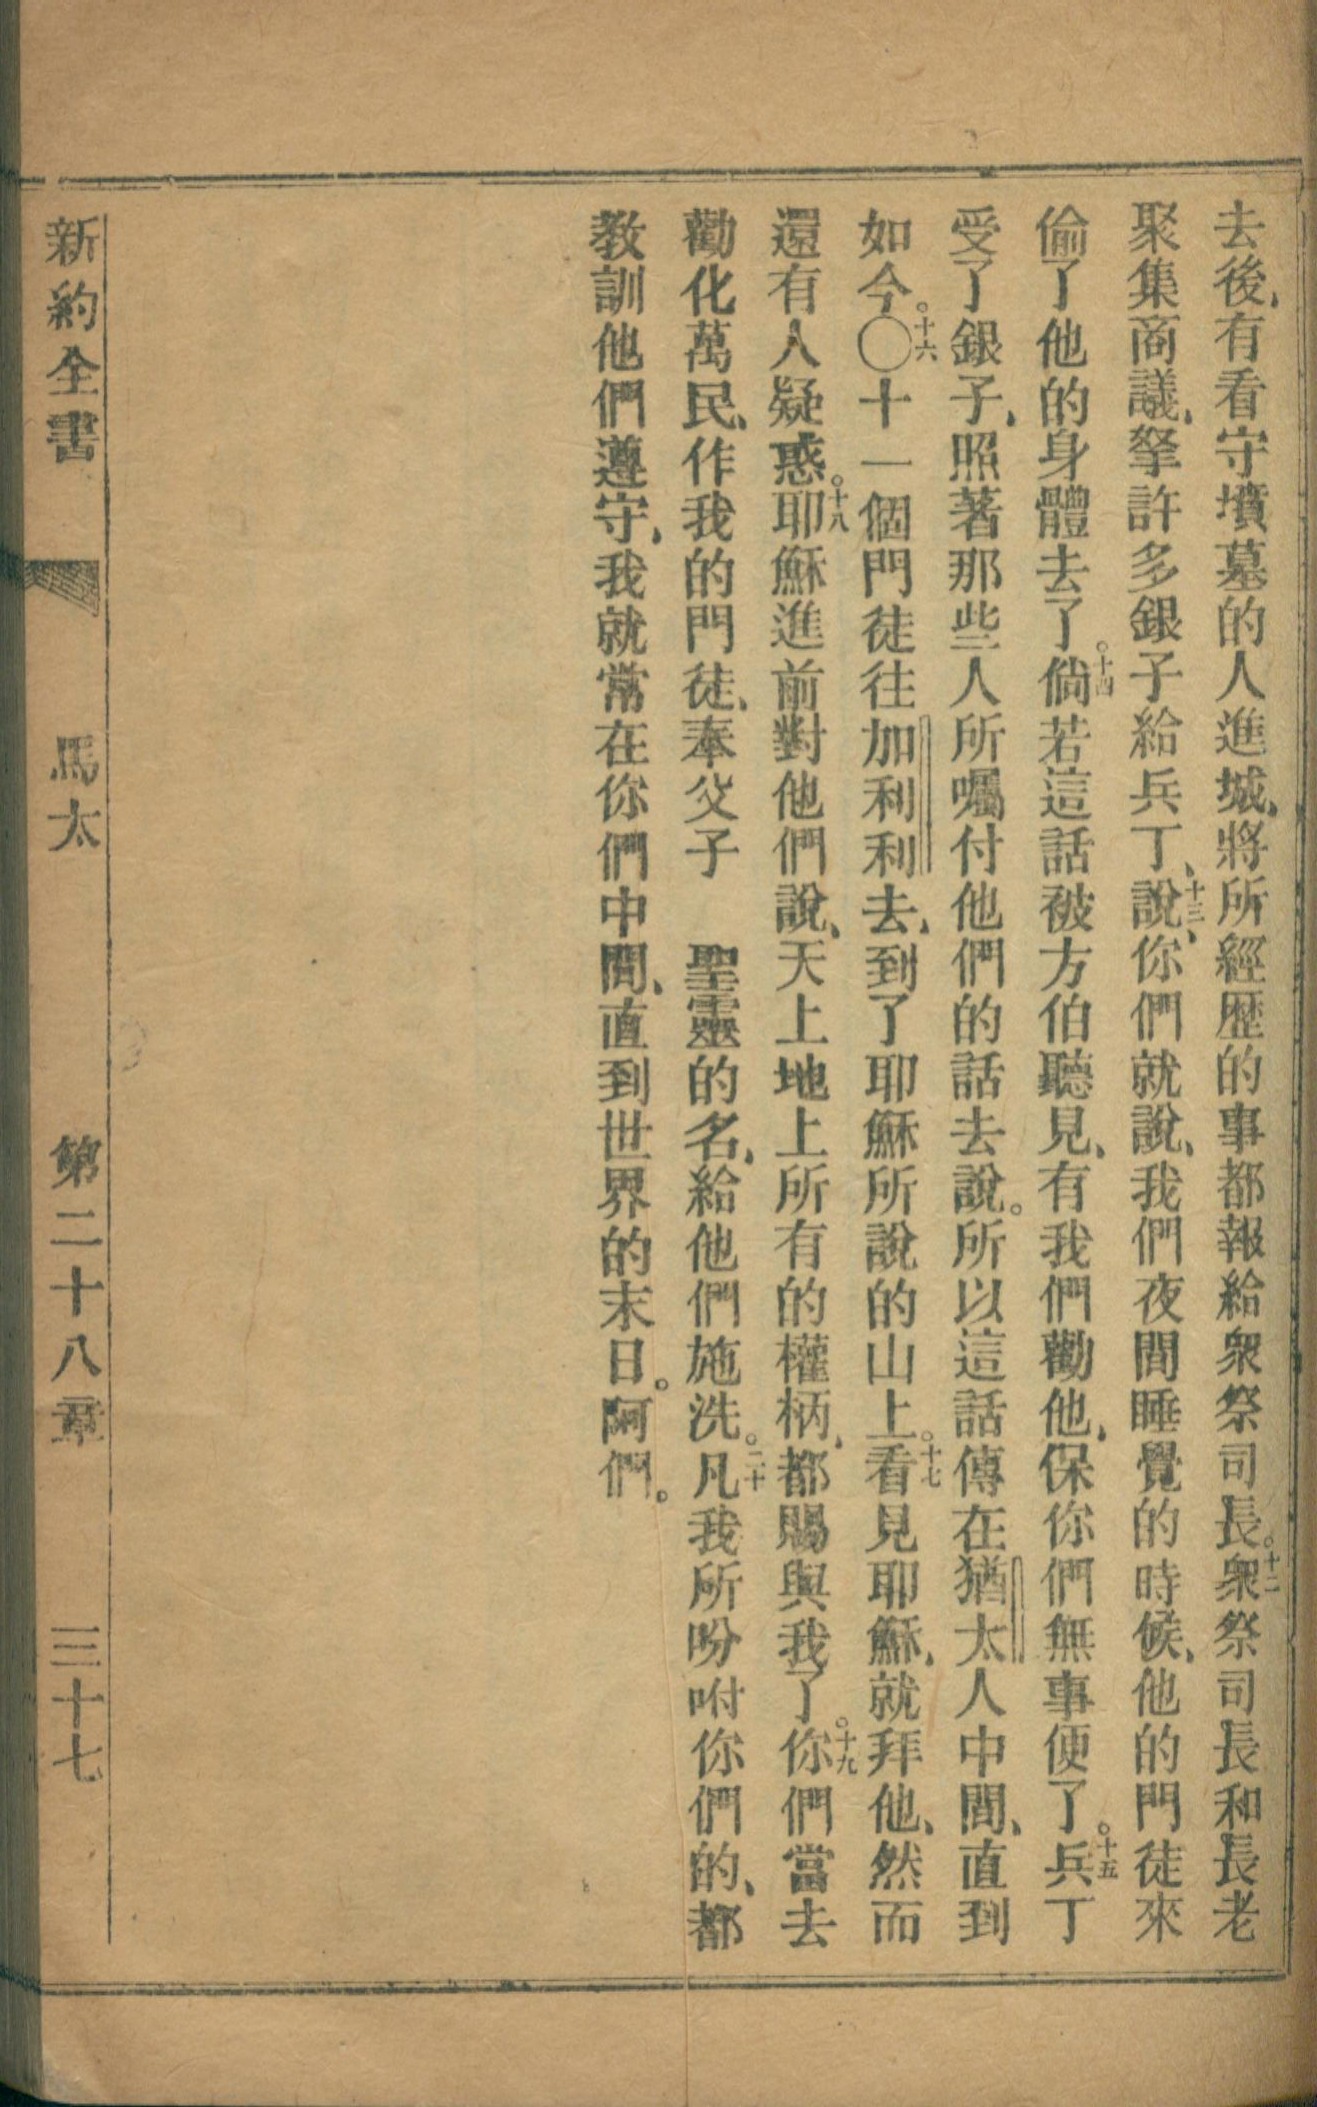 去後、有看守墳墓的人進城、將所經歷的事都報給衆祭司長。十二衆祭司長和長老
聚集商議、拏許多銀子給兵丁、十三說、你們就說、我們夜間睡覺的時候、他的門徒來
偷了他的身體去了。十四倘若這話被方伯聽見、有我們勸他、保你們無事便了。十五兵丁
受了銀子、照著那些人所囑付他們的話去說。所以這話傳在猶太人中間、直到
如今。○十六十一個門徒往加利利去、到了耶穌所說的山上。十七看見耶穌、就拜他、然而
還有人疑惑。十八耶穌進前對他們說、天上地上所有的權柄、都賜與我了。十九你們當去
勸化萬民、作我的門徒、奉父子　聖靈的名、給他們施洗。二十凡我所吩咐你們的、都
教訓他們遵守、我就常在你們中間、直到世界的末日。阿們。
新約全書　馬太　第二十八章　三十七